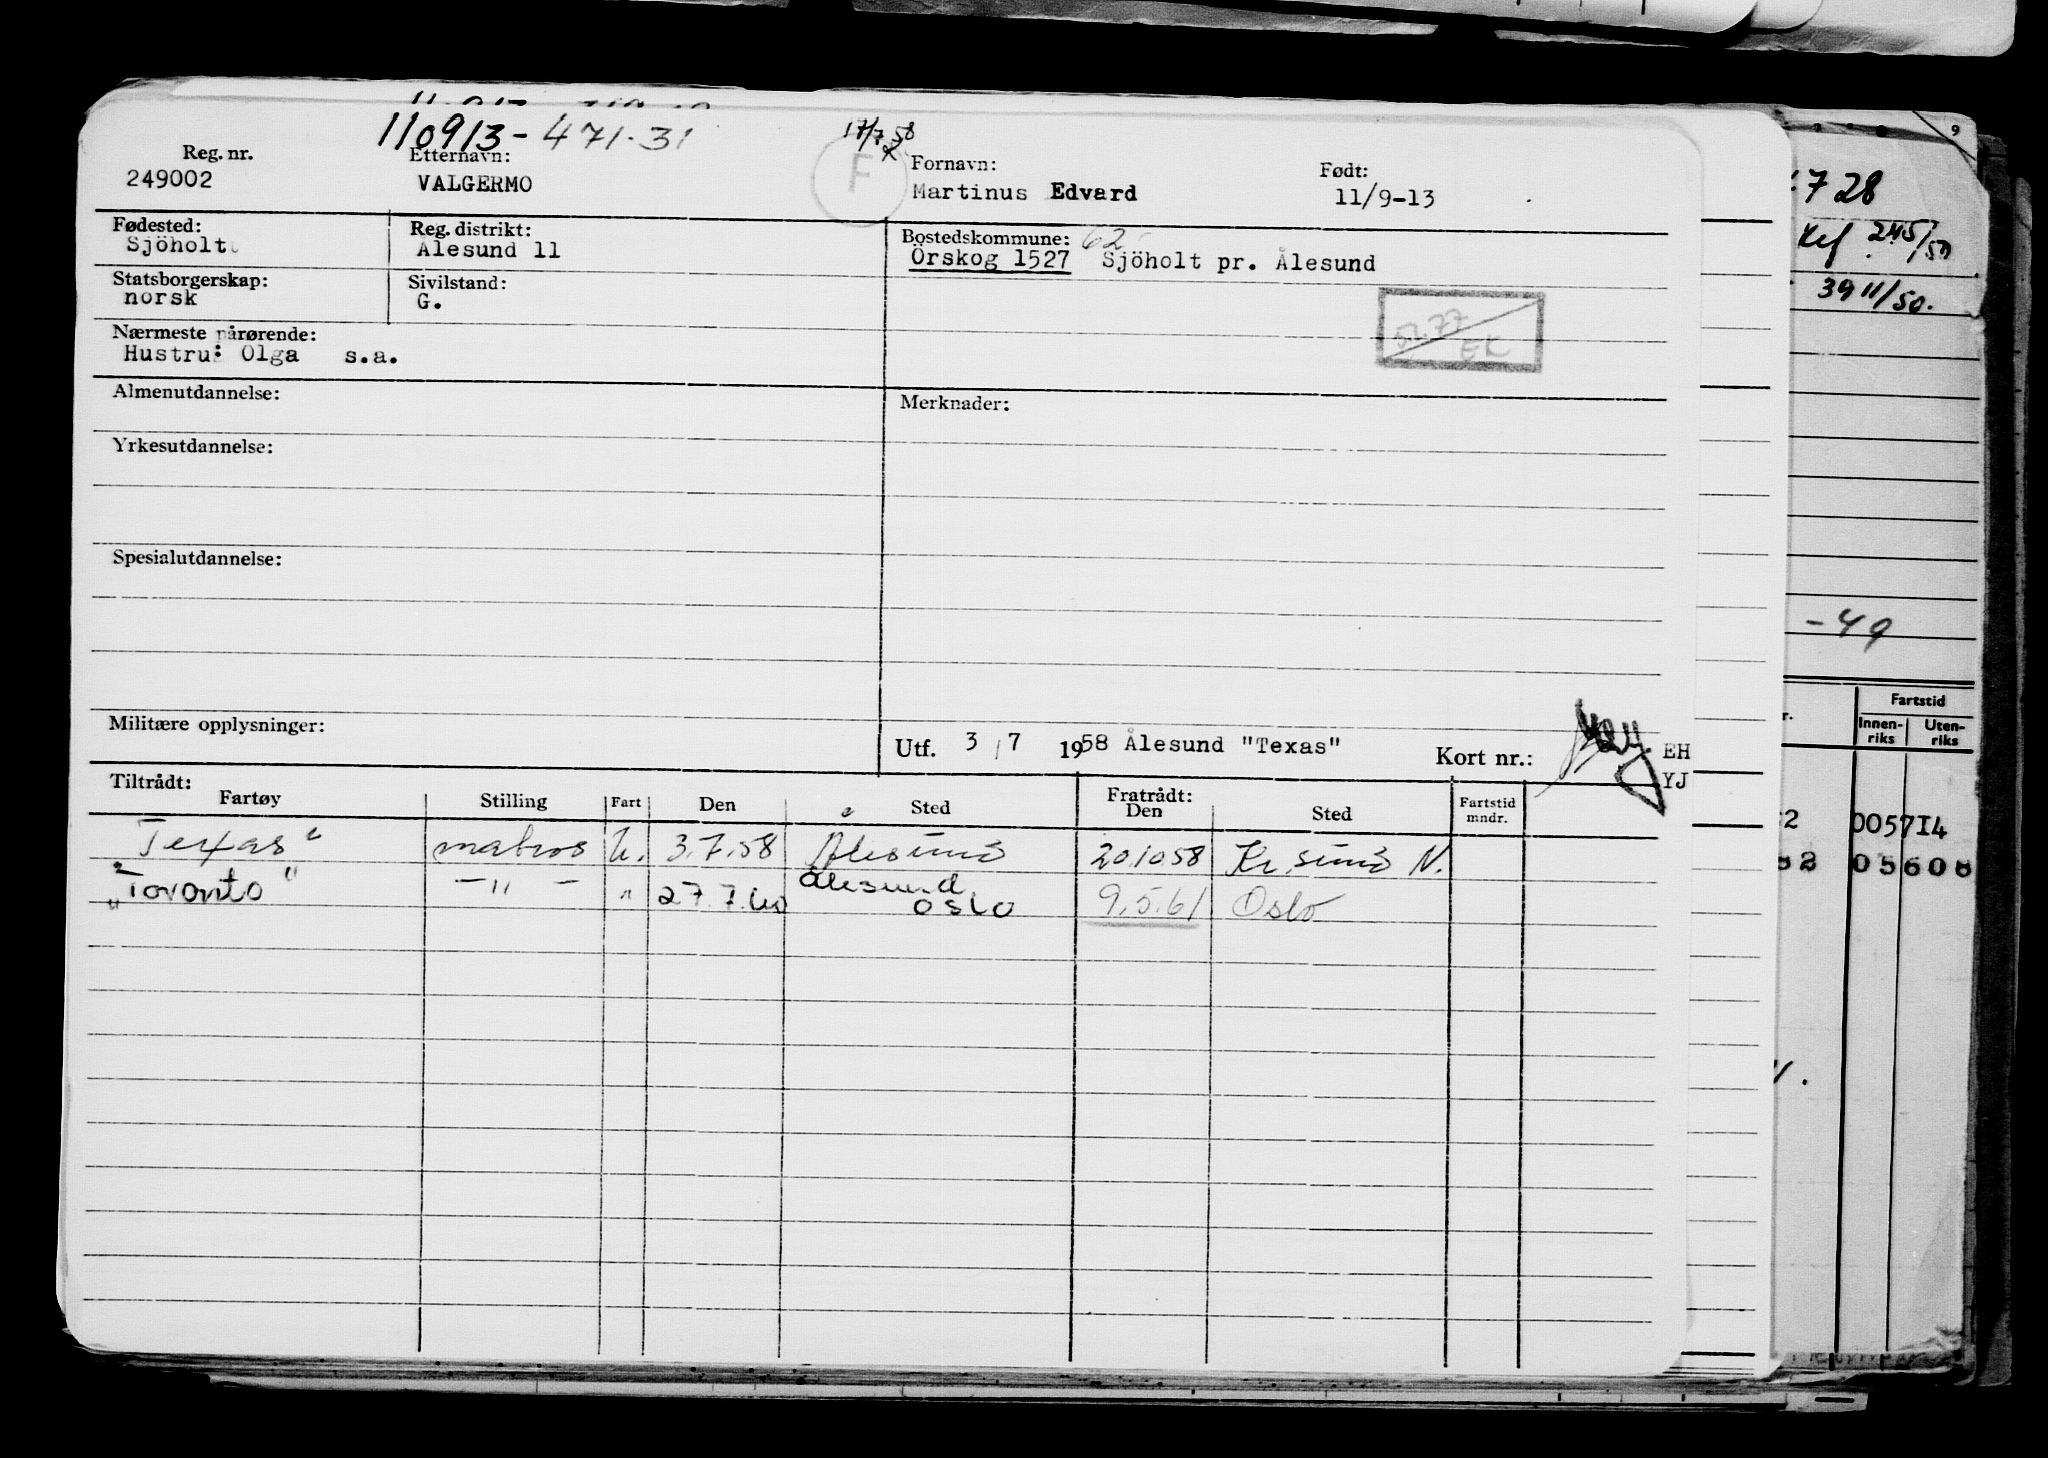 110913-471.31
17/7 58
Reg. nr. Etternavn: F Fornavn: Født:
249002 VALGERMO Martinus Edvard 11/9-13
Fødested: Reg. distrikt: Bostedskommune: 62
Sjöholt Ålesund 11 Örskog 1527 Sjöholt pr. Ålesund
Statsborgerskap: Sivilstand:
norsk G.
52.77
EK
Nærmeste pårørende:
Hustru: Olga s.a.
Almenutdannelse: Merknader:
Yrkesutdannelse:
Spesialutdannelse:
Militære opplysninger: Utf. 3/7 1958 Ålesund "Texas" Kort nr.: EH
YJ
Tiltrådt: Fratrådt:
Fartøy Stilling Fart Den Sted Den Sted Fartstid mndr.
"Texas" matros U. 3.7.58 Ålesund 20.10.58 Kr.sund N.
"Toronto" -"- " 27.7.60 Ålesund Oslo 9.5.61 Oslo
9
728
245/50
3911/50.
-49
Fartstid
Innen-riks Uten-riks
2 005714
82 05608